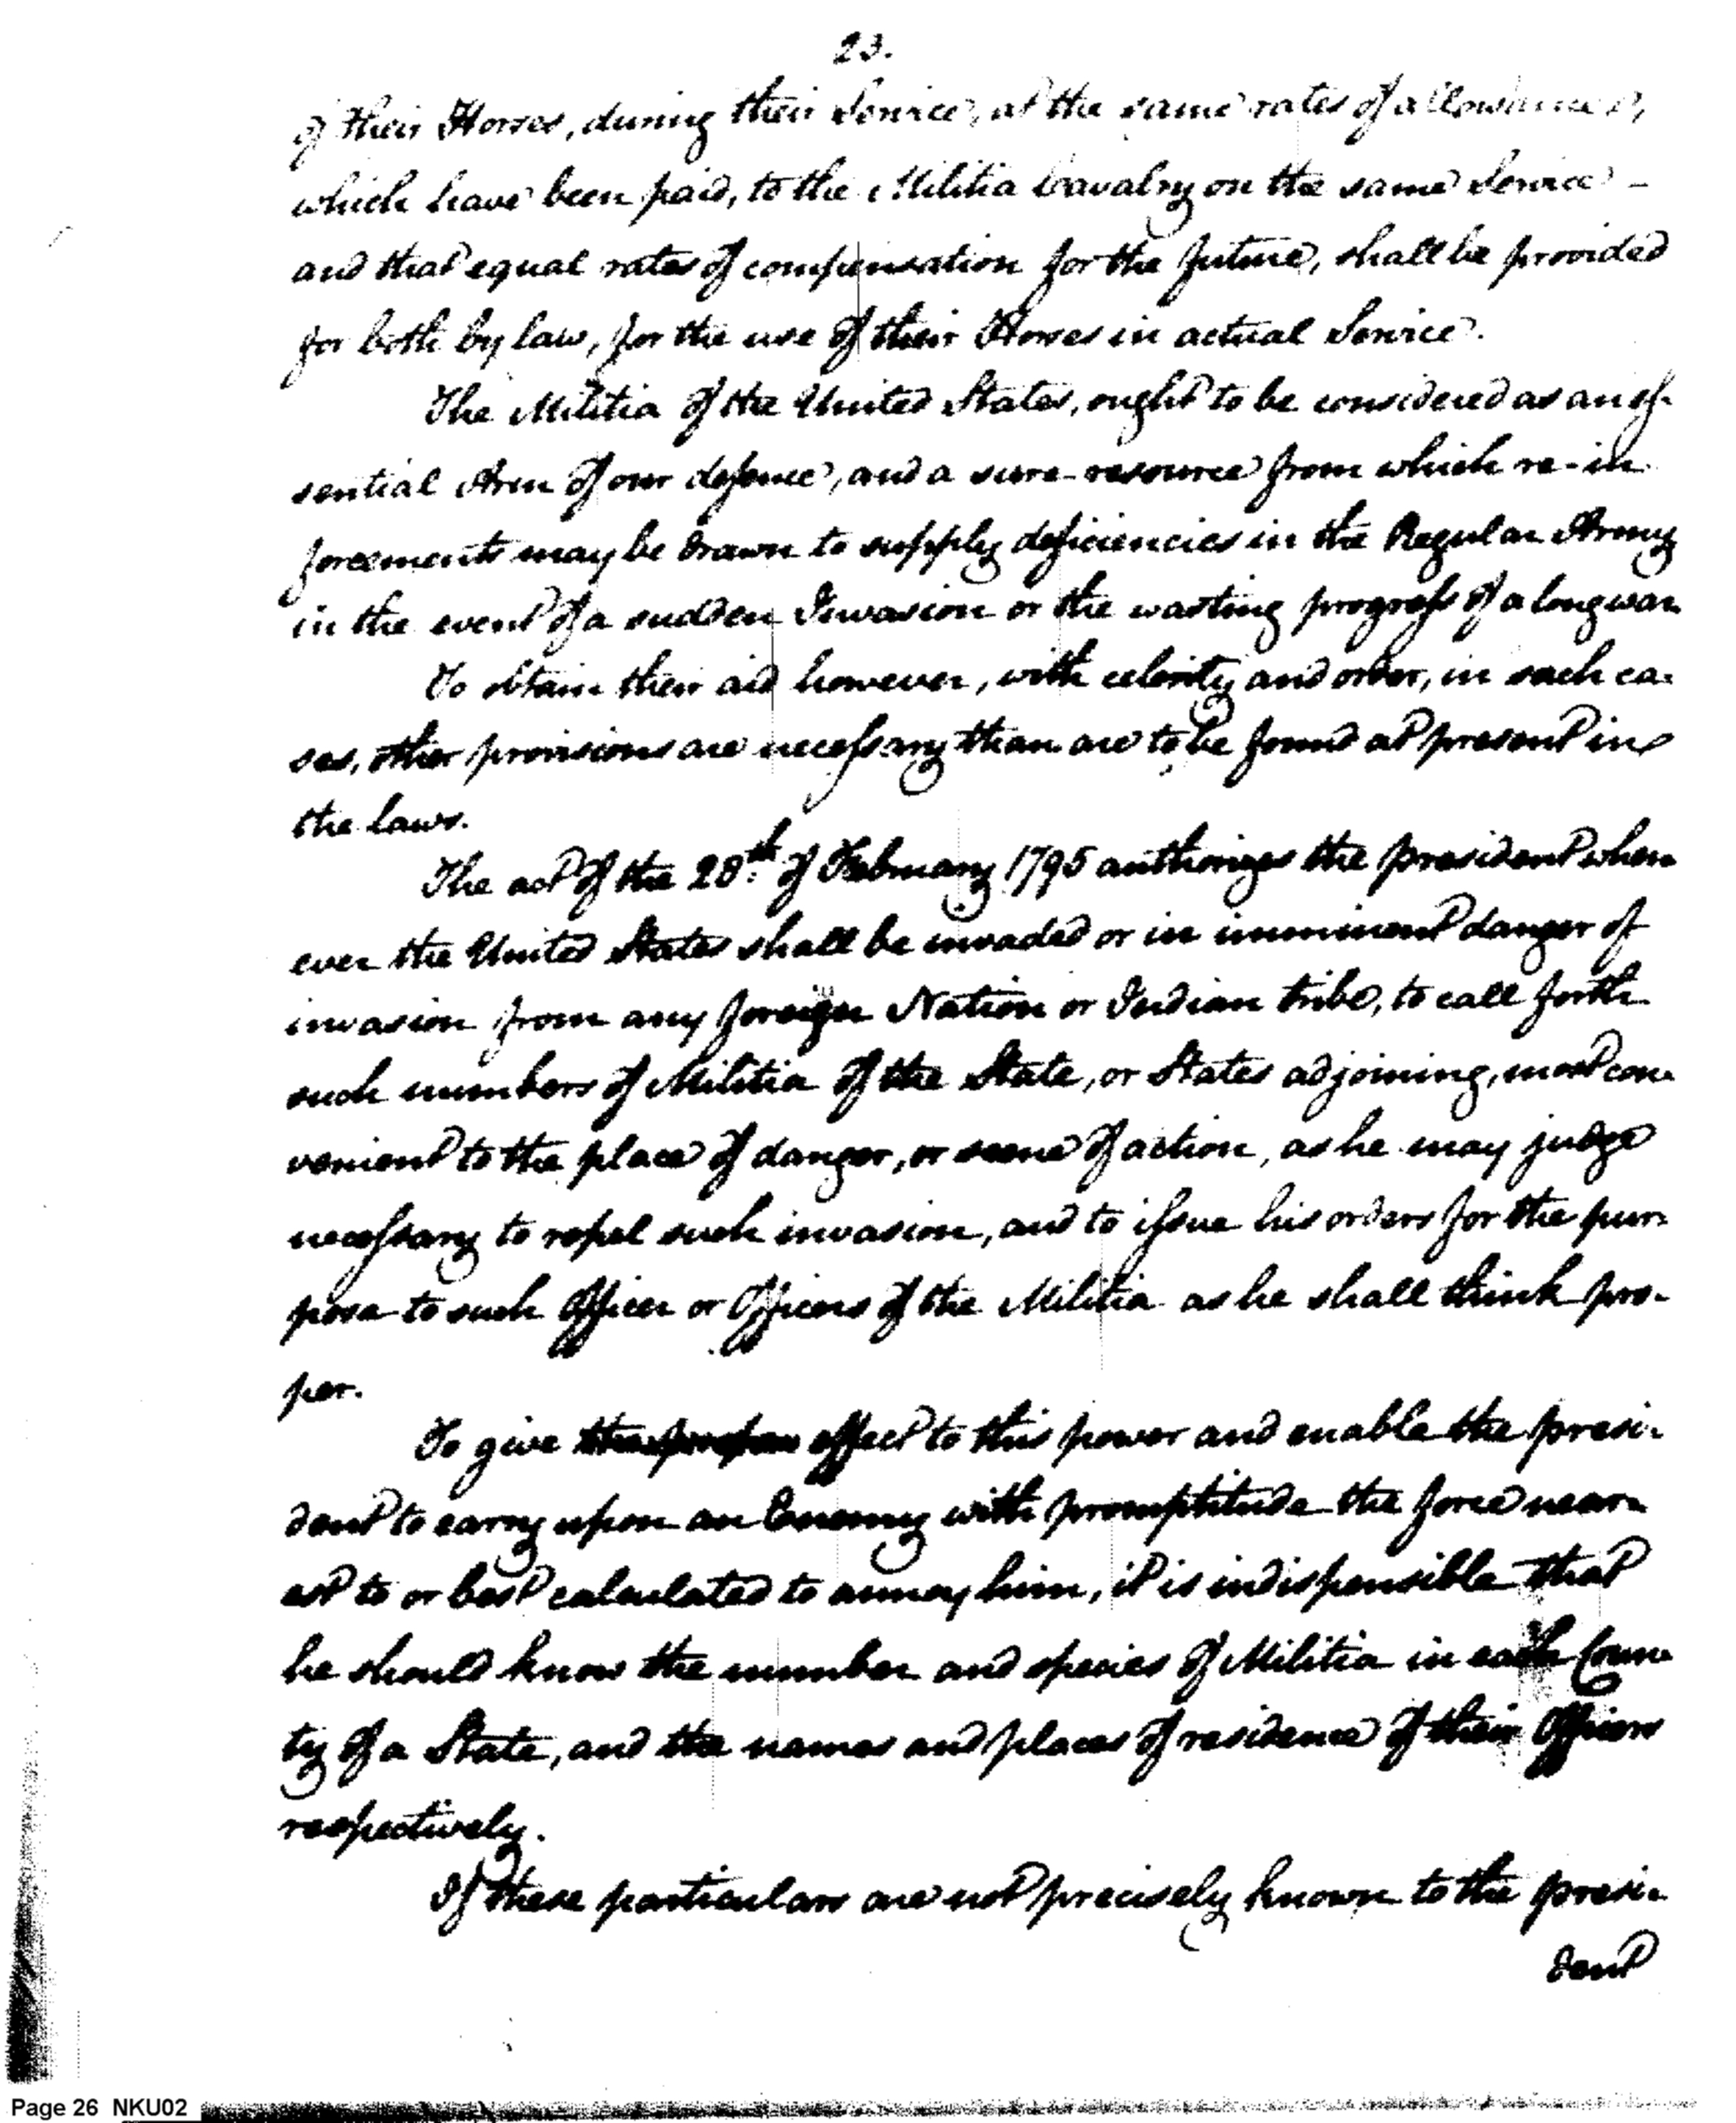 23.
of their Horses, during their Service, at the same rates of allowances,
which have been paid, to the Militia Cavalry on the same Service –
and that equal rates of compensation for the future, shall be provided
for both by law, for the use of their Horses in actual Service.
The Militia of the United States, ought to be considered as an es-
sential Arm of our defence, and a sure resource from which re-in
forcements may be drawn to supply deficiencies in the Regular Army
in the event of a sudden Invasion or the wasting progress of a long war
To obtain their aid however, with celerity and order, in such ca-
ses, other provisions are necessary than are to be found at present in
the laws.
The act of the 28th of February 1795 authorizes the president when
ever the United States shall be invaded or in imminent danger of
invasion from any foreign Nation or Indian tribe, to call forth
such numbers of Militia of the State, or States adjoining, most con-
venient to the place of danger, or scene of action, as he may judge
necessary to repel such invasion, and to issue his orders for the pur-
pose to such Officer or Officers of the Militia as he shall think pro-
per.
To give effect to this power and enable the presi-
dent to carry upon an Enemy with promptitude the force near-
est to or best calculated to annoy him, it is indispensible that
he should know the number and species of Militia in each Coun-
ty of a State, and the names and places of residence of their Officers
respectively.
If these particulars are not precisely known to the presi-
dent
Page 26 NKU02